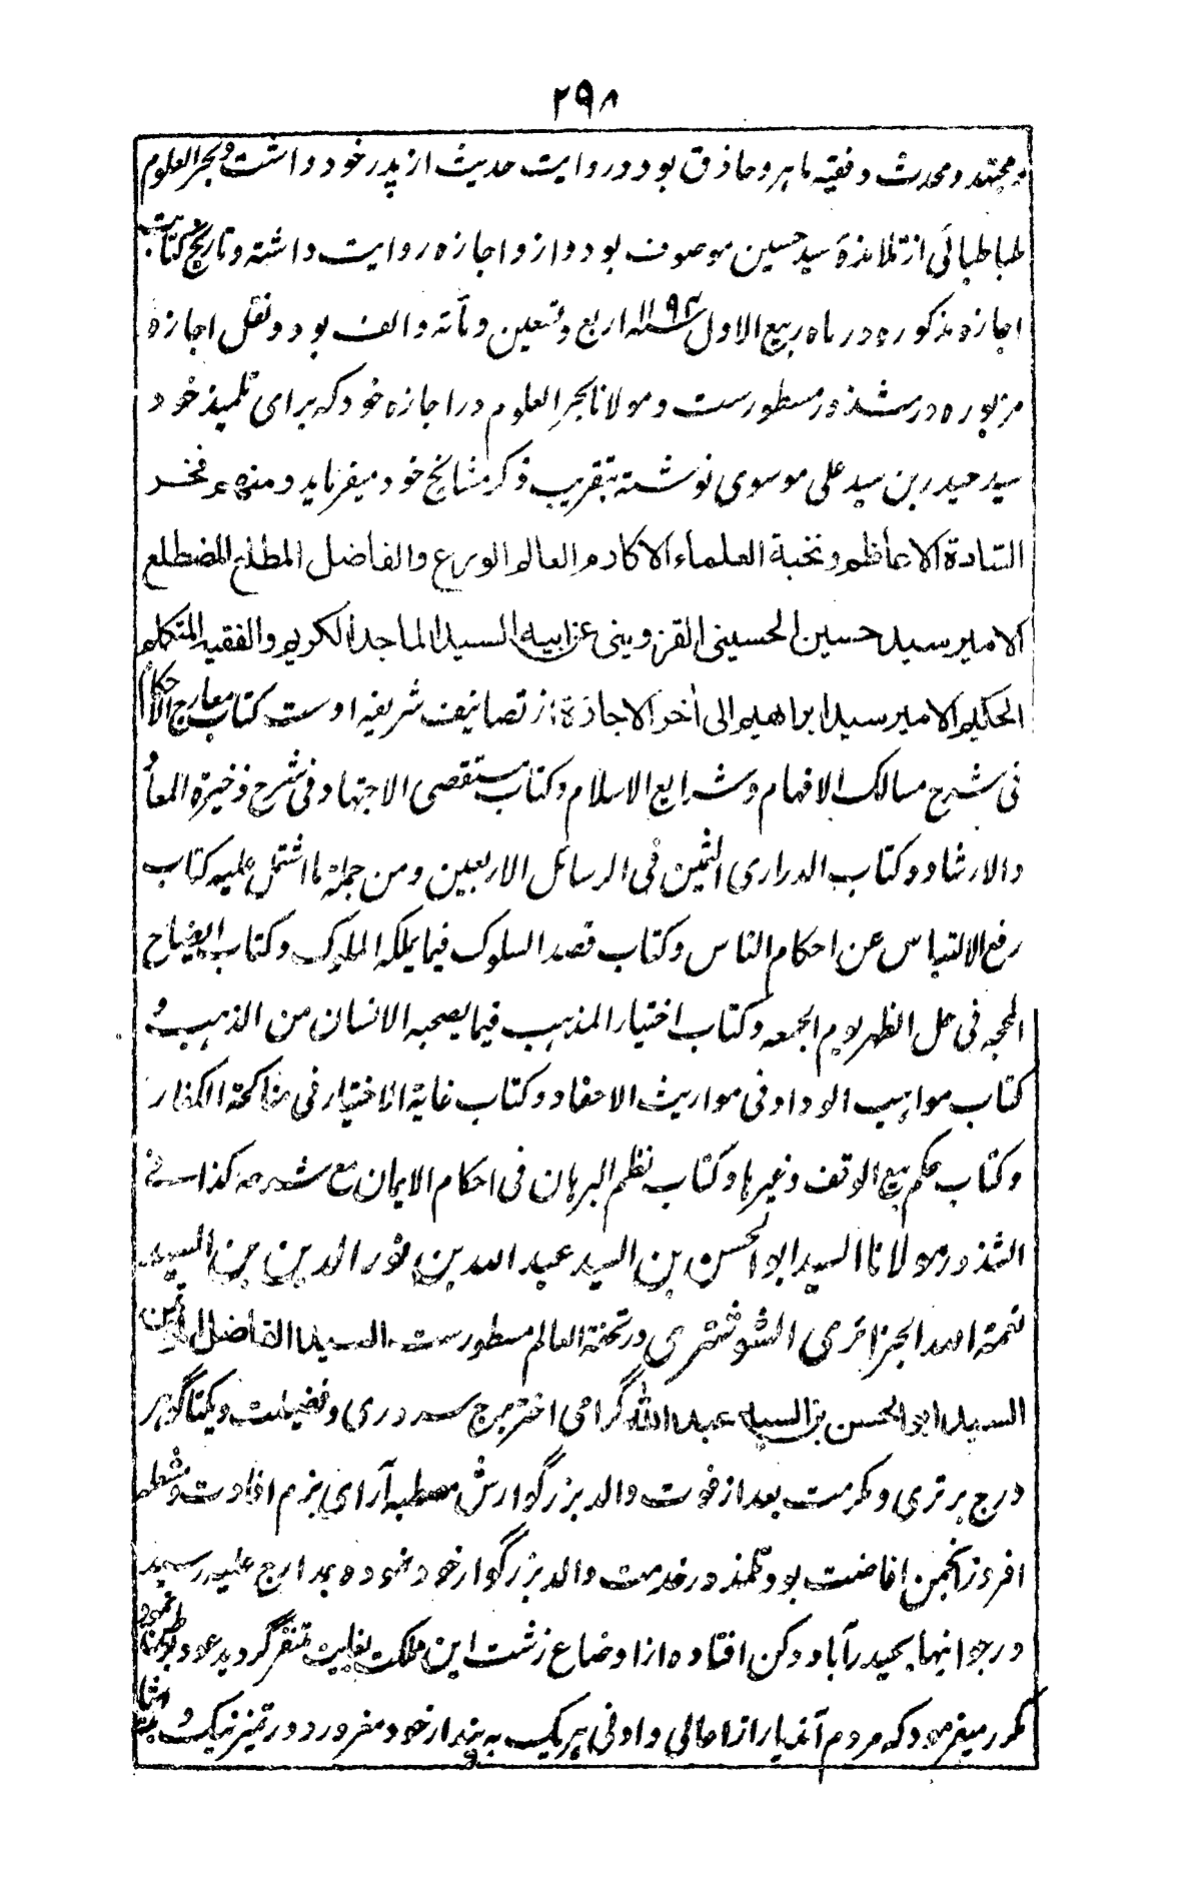 ۲۹۸
و مجتهد و محدث و فقیه ماهر و حاذق بود در روایت حدیث از پدر خود داشت و بحر العلوم
طباطبائی از تلامذهٔ سید حسین موصوف بود و از و اجازه روایت داشته و تاریخ کتابت
اجازه مذکوره در ماه ربیع الاول سنه ۱۱۹۴ اربع و تسعین و مأته و الف بود و نقل اجازه
مزبوره در شذور مسطورست و مولانا بحر العلوم در اجازه خود که برای تلمیذ خود
سید حیدر بن سید علی موسوی نوشته بتقریب ذکر مشائخ خود میفرماید و منهم فخر
السادة الاعاظم ونخبة العلماء الاکارم العالم الورع والفاضل المطلع المضطلع
الامیر سید حسین الحسینی القزوینی عن ابیه السید الماجد الکریم والفقیه المتکلم
الحکیم الامیر سید ابراهیم الی أخر الاجازة از تصانیف شریفه اوست کتاب معارج الاحکام
فی شرح مسالک الافهام و شرایع الاسلام و کتاب مستقصی الاجتهاد فی شرح ذخیرة المعاد
و الارشاد و کتاب الدراری الثمین فی الرسائل الاربعین و من جملة ما اشتمل علیه کتاب
رفع الالتباس عن احکام الناس و کتاب قصد السلوک فیما یملکه الملوک و کتاب ایضاح
المحجه فی حل الظهر یوم الجمعه و کتاب اختیار المذهب فیما یصحبه الانسان من الذهب و
کتاب مواهب الوداد فی مواریث الاحفاد و کتاب غایة الاختیار فی مناکحة الکفار
و کتاب حکم بیع الوقف و غیرها و کتاب نظم البرهان فی احکام الایمان مع شرحه کذا فی
الشذور مولانا السید ابو الحسن بن السید عبد الله بن نور الدین بن السید
نعمة الله الجزائری الشوشتری در تحفة العالم مسطورست السید الفاضل
السید ابو الحسن بن السید عبد الله گرامی اختر برج سروری و فضیلت و یکتا گوهر
درج برتری و مکرمت بعد از فوت والد بزرگوارش مصطبه آرای بزم افادت و مشعله
افروز انجمن افاضت بود و تلمذ در خدمت والد بزرگوار خود نموده بمدارج علیه رسید
و در جوانیها بحیدرآباد دکن افتاده از اوضاع زشت این مملکت بغایت متنفر گردید عود بوطن نمود
مکرر میفرمود که مردم آندیار از اعالی و ادنی هر یک به پندار خود مغرور و در تمیز نیک و بد